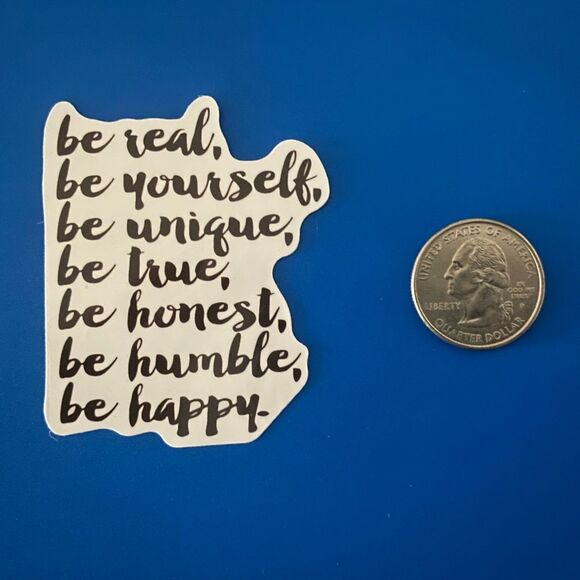 be real,
be yourself,
be unique,
be true,
be honest,
be humble,
be happy.
UNITED STATES OF AMERICA
LIBERTY
IN
GOD WE
TRUST
P
QUARTER DOLLAR